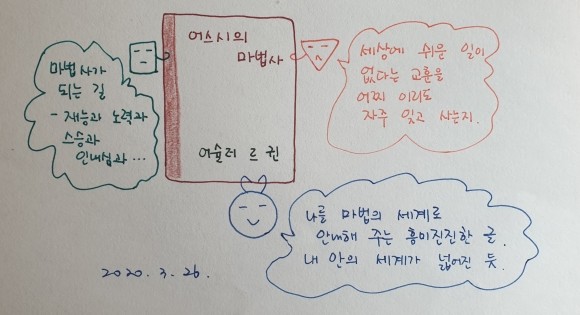 어스시의
마법사
어슐러 르 귄
마법사가
되는 길
- 재능과 노력과
스승과
인내심과 ...
세상에 쉬운 일이
없다는 교훈을
어찌 이리도
자주 잊고 사는지.
나를 마법의 세계로
안내해 주는 흥미진진한 글.
내 안의 세계가 넓어진 듯.
2020. 3. 26.